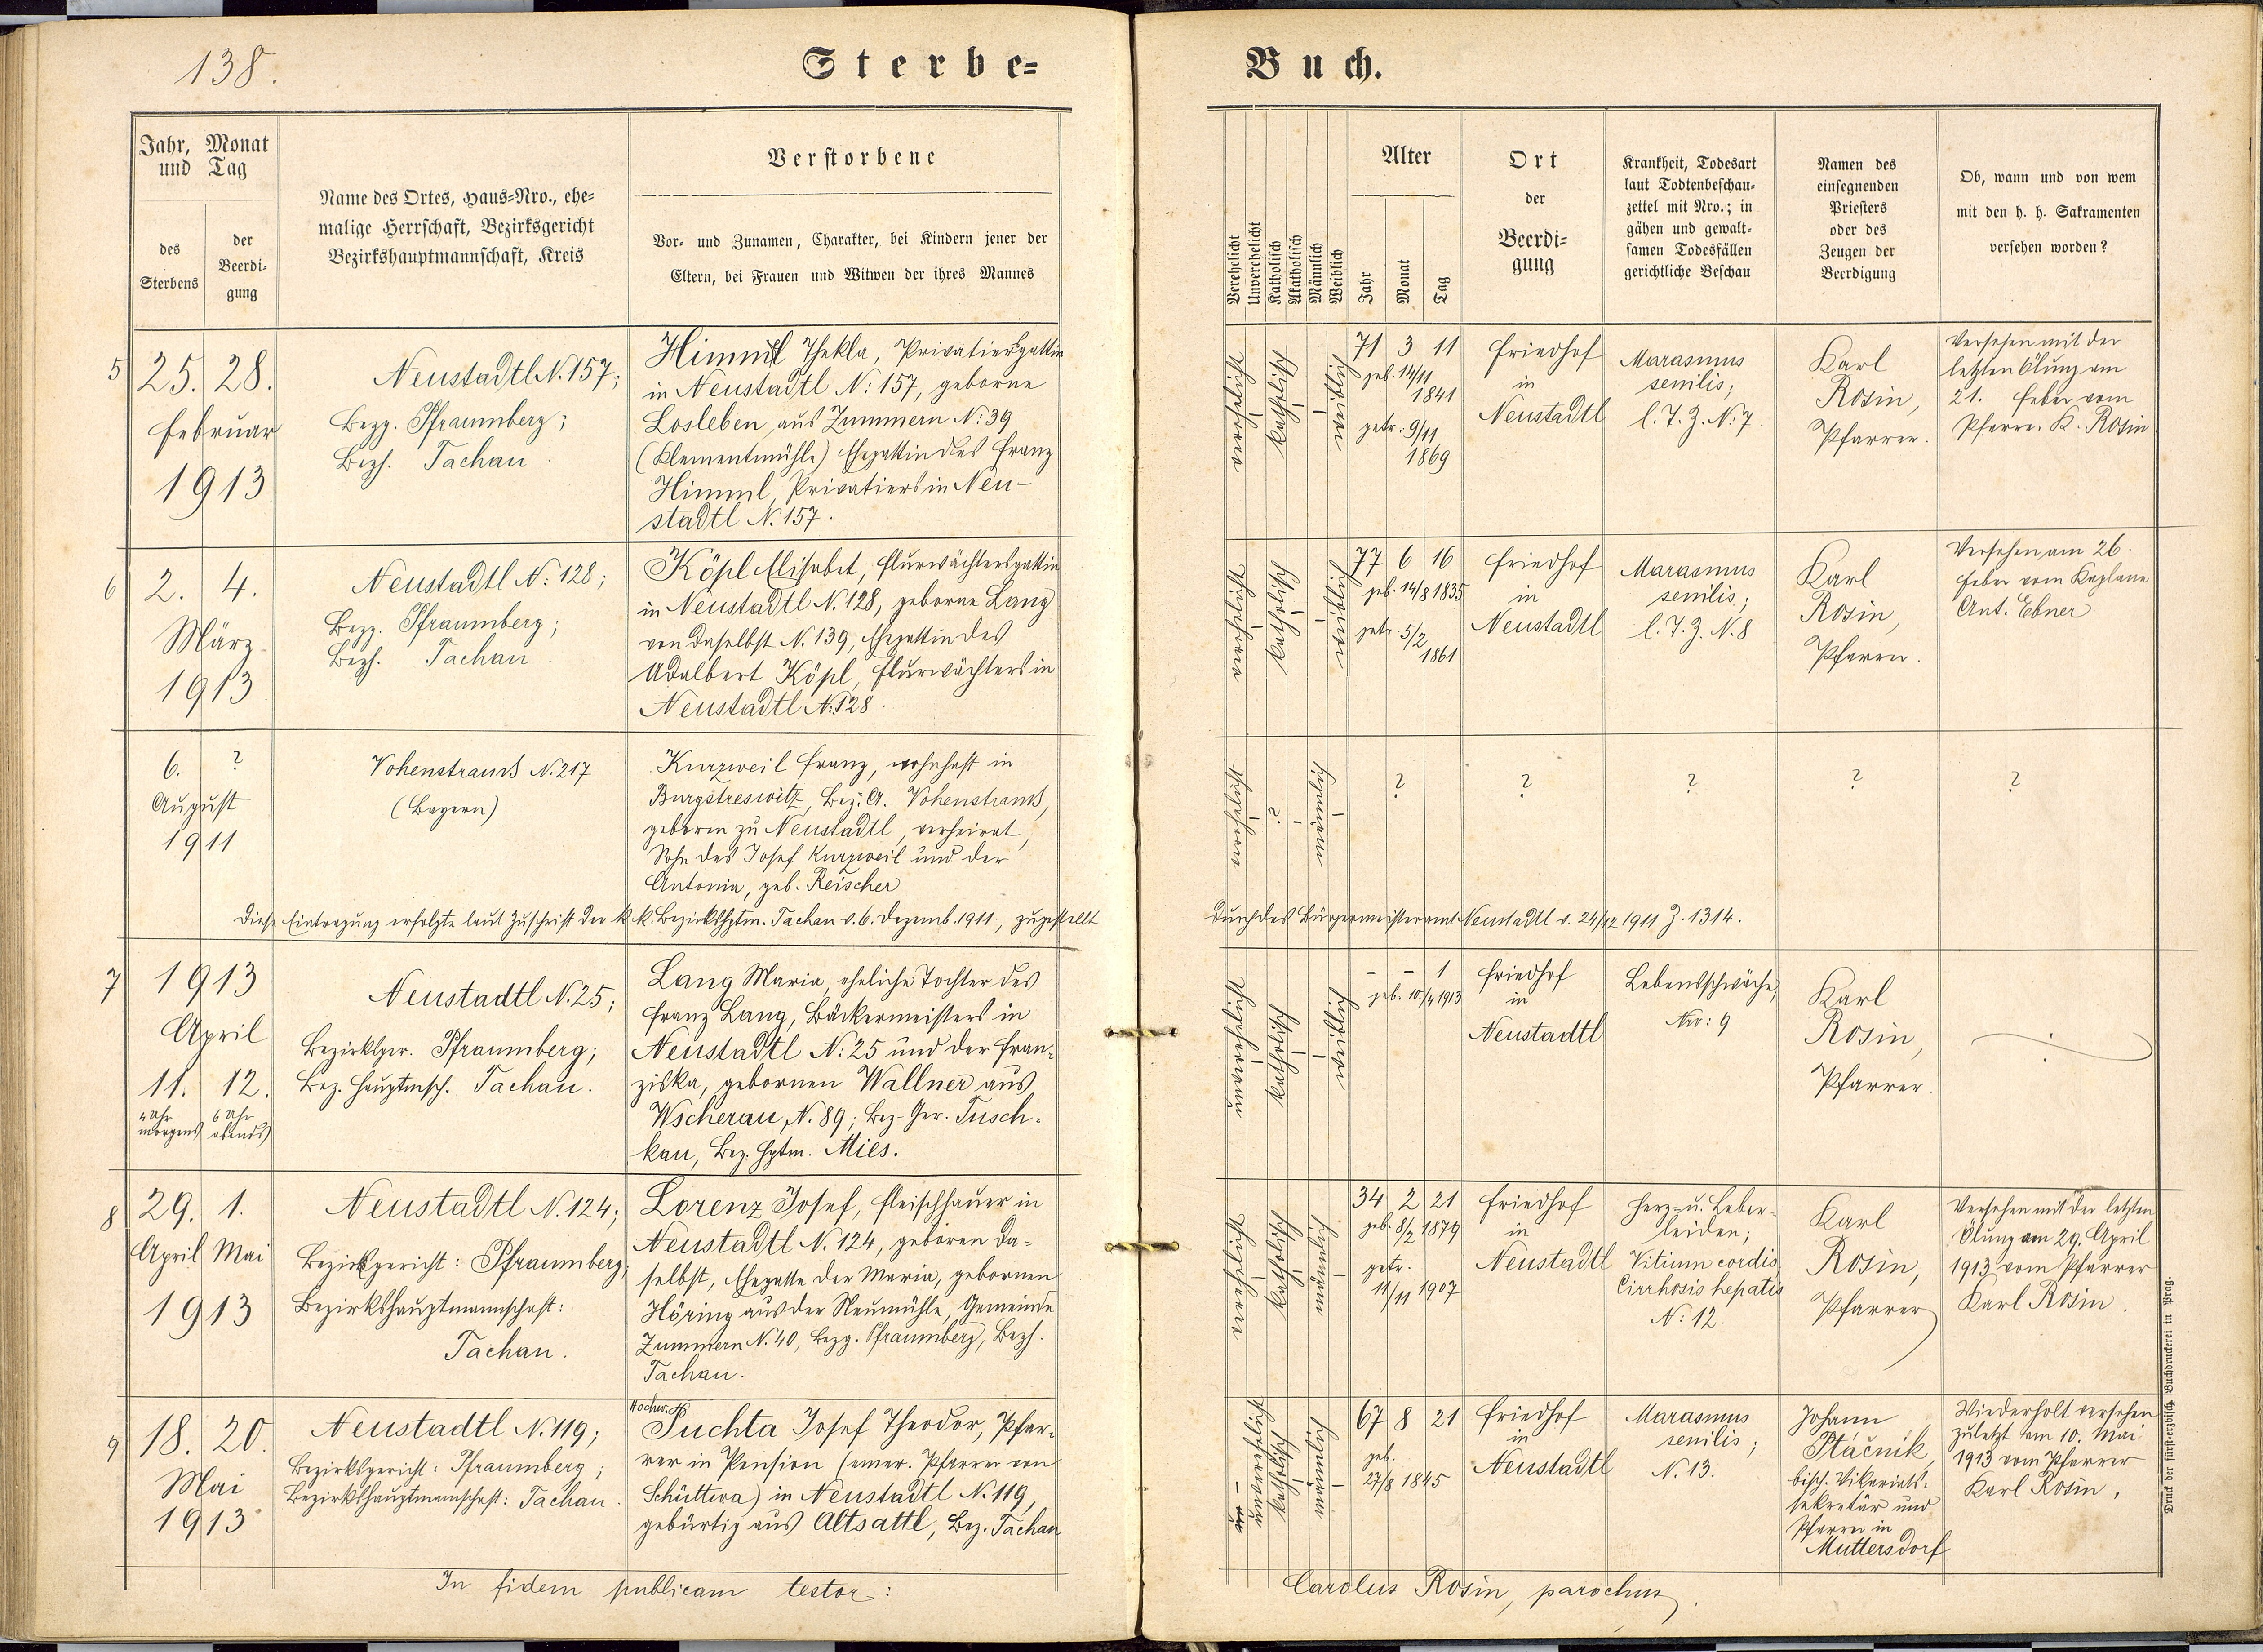 138.
Sterbe=
Buch.
Jahr, Monat
und Tag
des
Sterbens
der
Beerdi-
gung
Name des Ortes, Haus=Nro., ehe=
malige Herrschaft, Bezirksgericht
Bezirkshauptmannschaft, Kreis
Verstorbene
Vor- und Zunamen, Charakter, bei Kindern jener der
Eltern, bei Frauen und Witwen der ihres Mannes
Verehelicht
Unverehelicht
Katholisch
Akatholisch
Männlich
Weiblich
Alter
Jahr
Monat
Tag
Ort
der
Beerdi=
gung
Krankheit, Todesart
laut Todtenbeschau-
zettel mit Nro.; in
gähen und gewalt-
samen Todesfällen
gerichtliche Beschau
Namen des
einsegnenden
Priesters
oder des
Zeugen der
Beerdigung
Ob, wann und von wem
mit den h. h. Sakramenten
versehen worden?
5
25. 28.
Februar
1913
Neustadtl N. 157;
Bezg. Pfraumberg;
Bezh. Tachau.
Himml Thekla, Privatiersgattin
in Neustadtl N: 157, geborne
Losleben aus Zummern N: 39
(Klementmühle) Ehegattin des Franz
Himml, Privatiers in Neu-
stadtl N. 157.
verehelicht
katholisch
weiblich
71 3 11
geb. 14/11
1841
getr. 9/11
1869
Friedhof
in
Neustadtl
Marasmus
senilis;
l. T. Z. N: 7.
Karl
Rosin,
Pfarrer.
Versehen mit der
letzten Ölung am
21. Feber vom
Pfarr. K. Rosin
6
2. 4.
März
1913
Neustadtl N: 128;
Bezg. Pfraumberg;
Bezh. Tachau.
Köpl Elisabet, Flurwächtersgattin
in Neustadtl N. 128, geborne Lang
von daselbst N. 139, Ehegattin des
Adalbert Köpl, Flurwächters in
Neustadtl N: 128.
verehelicht
katholisch
weiblich
77 6 16
geb. 14/8 1835
getr. 5/2
1861
Friedhof
in
Neustadtl
Marasmus
senilis;
l. T. Z. N. 8
Karl
Rosin,
Pfarrer.
Versehen am 26.
Feber vom Kaplane
Ant. Ebner
6. ?
August
1911
Vohenstrauß N. 217
(Bayern)
Kurzweil Franz, wohnhaft in
Burgstreswitz, Bez. A. Vohenstrauß,
geboren zu Neustadtl, verheirat,
Sohn des Josef Kurzweil und der
Antonia, geb. Reischer
verehelicht
?
männlich
?
?
?
?
?
Diese Eintragung erfolgte laut Zuschrift der k. k. Bezirkshptm. Tachau v. 6. Dezemb. 1911, zugestellt
durch das Bürgermeisteramt Neustadtl v. 24/12 1911 Z. 1314.
7
1913
April
11. 12.
4 Uhr 6 Uhr
morgens abends
Neustadtl N. 25;
Bezirksger. Pfraumberg;
Bez. Hauptmsch. Tachau.
Lang Maria, eheliche Tochter des
Franz Lang, Bäckermeisters in
Neustadtl N: 25 und der Fran-
ziska, gebornen Wallner aus
Wscherau, N. 89; Bez-Ger. Tusch-
kau, Bez. Hptm. Mies.
unverehelicht
katholisch
weiblich
- - 1
geb. 10./4 1913
Friedhof
in
Neustadtl
Lebensschwäche,
Nro: 9
Karl
Rosin,
Pfarrer.
8
29. 1.
April Mai
1913
Neustadtl N. 124;
Bezirksgericht: Pfraumberg;
Bezirkshauptmannschaft:
Tachau.
Lorenz Josef, Fleischhauer in
Neustadtl N. 124, geboren da-
selbst, Ehegatte der Maria, gebornen
Höring aus der Neumühle, Gemeinde
Zummern N. 40, Bezg. Pfraumberg, Bezh.
Tachau.
verehelicht
katholisch
männlich
34 2 21
geb. 8/2 1879
getr.
11/11 1907
Friedhof
in
Neustadtl
Herz- u. Leber-
leiden;
Vitium cordis
Cirrhosis hepatis
N: 12.
Karl
Rosin,
Pfarrer
Versehen mit der letzten
Ölung am 29. April
1913 vom Pfarrer
Karl Rosin.
9
18. 20.
Mai
1913
Neustadtl N. 119;
Bezirksgericht: Pfraumberg;
Bezirkshauptmannschaft: Tachau.
Hochw. H.
Puchta Josef Theodor, Pfar-
rer in Pension (emer. Pfarrer von
Schüttwa) in Neustadtl N. 119,
gebürtig aus Altsattl, Bez. Tachau
unverehelicht
katholisch
männlich
67 8 21
geb.
27/8 1845
Friedhof
in
Neustadtl
Marasmus
senilis;
N. 13.
Johann
Ptáčnik,
bisch. Vikariats-
sekretär und
Pfarrer in
Muttersdorf
Wiederholt versehen
zuletzt am 10. Mai
1913 vom Pfarrer
Karl Rosin.
In fidem publicam testor:
Carolus Rosin, parochus.
Druck der fürst-erzbisch. Buchdruckerei in Prag.